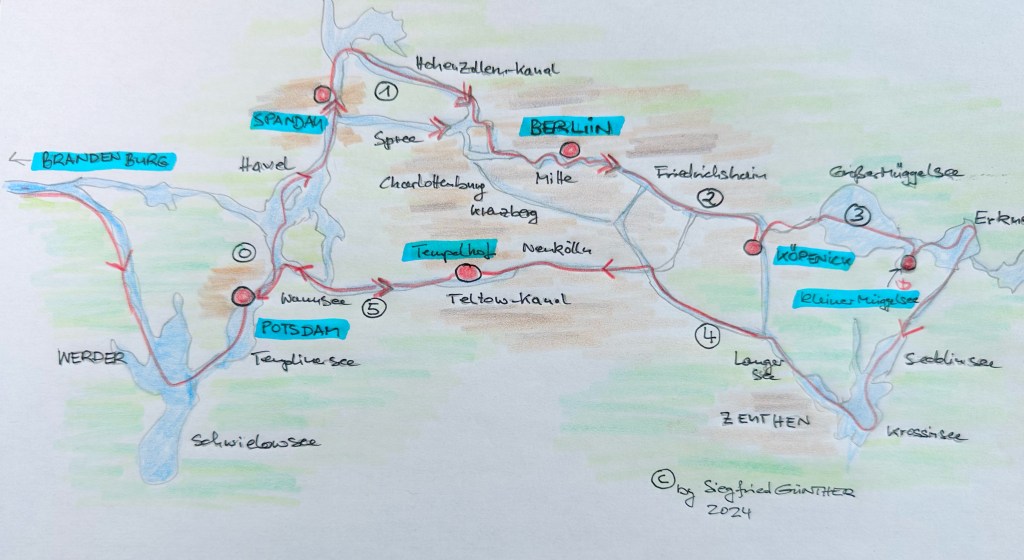 Hohenzollern-Kanal
1
SPANDAU
BERLIIN
Spree
BRANDENBURG
Havel
Mitte
Friedrichshain
Großer Müggelsee
Charlottenburg
Kreuzberg
2
3
Erkn
0
Tempelhof
Neukölln
KÖPENICK
Wannsee
5
Teltow-Kanal
Kleiner Müggelsee
POTSDAM
4
WERDER
Templinersee
Langer
See
Seddinsee
ZEUTHEN
Krossinsee
Schwielowsee
© by Siegfried GÜNTHER
2024